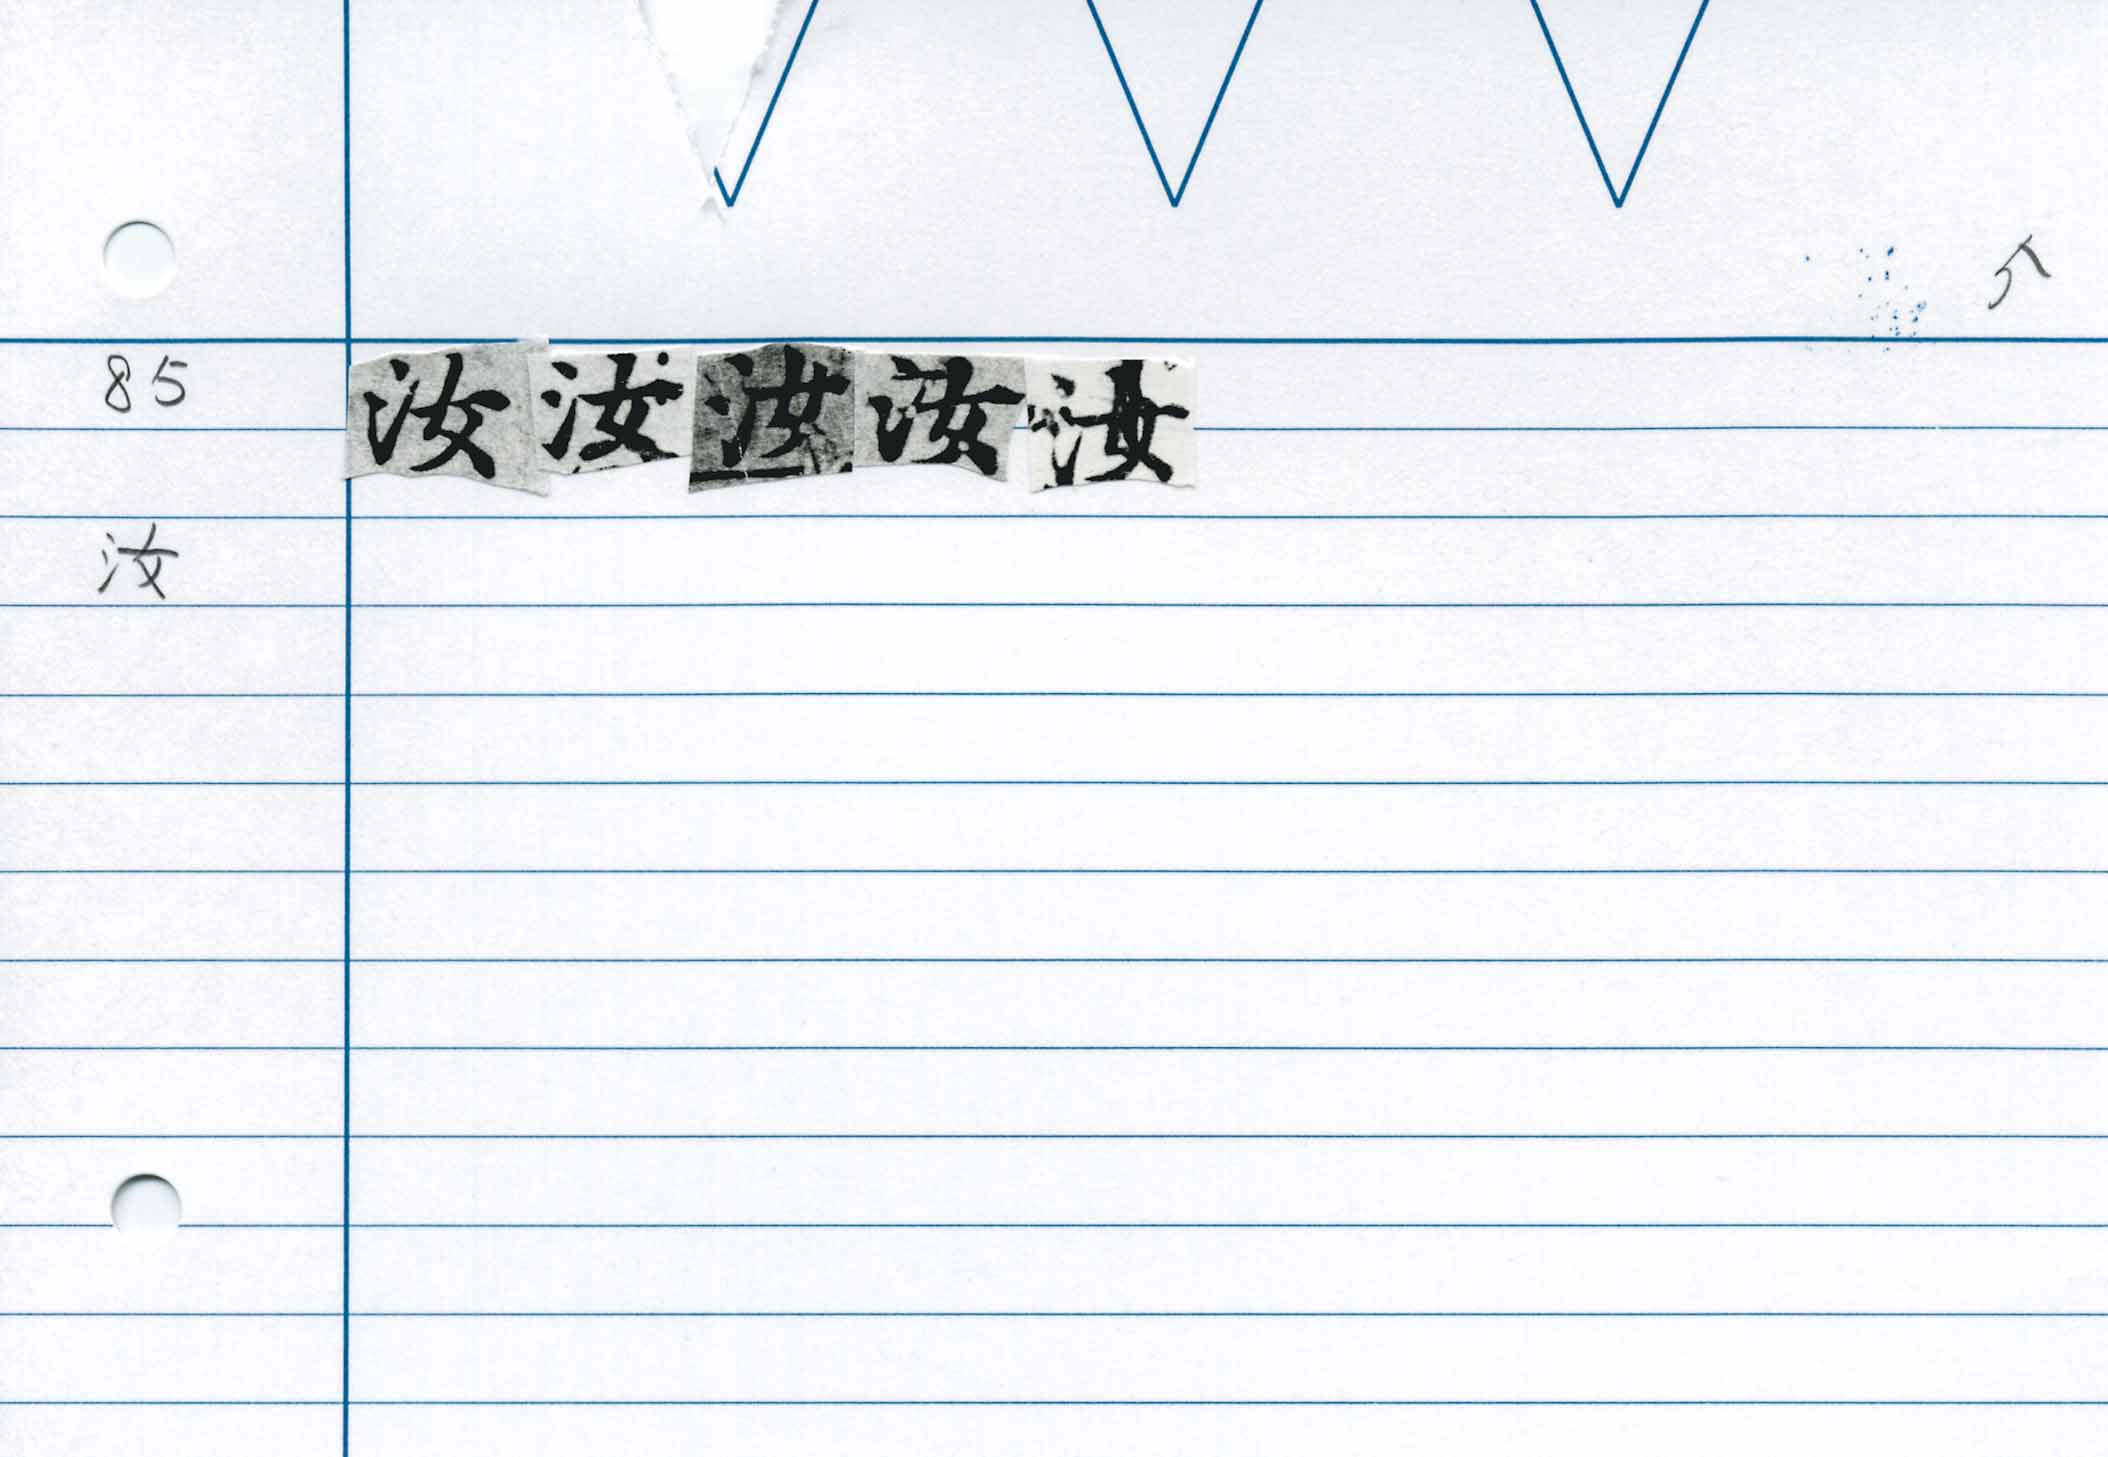 5
85 汝汝汝汝汝
汝